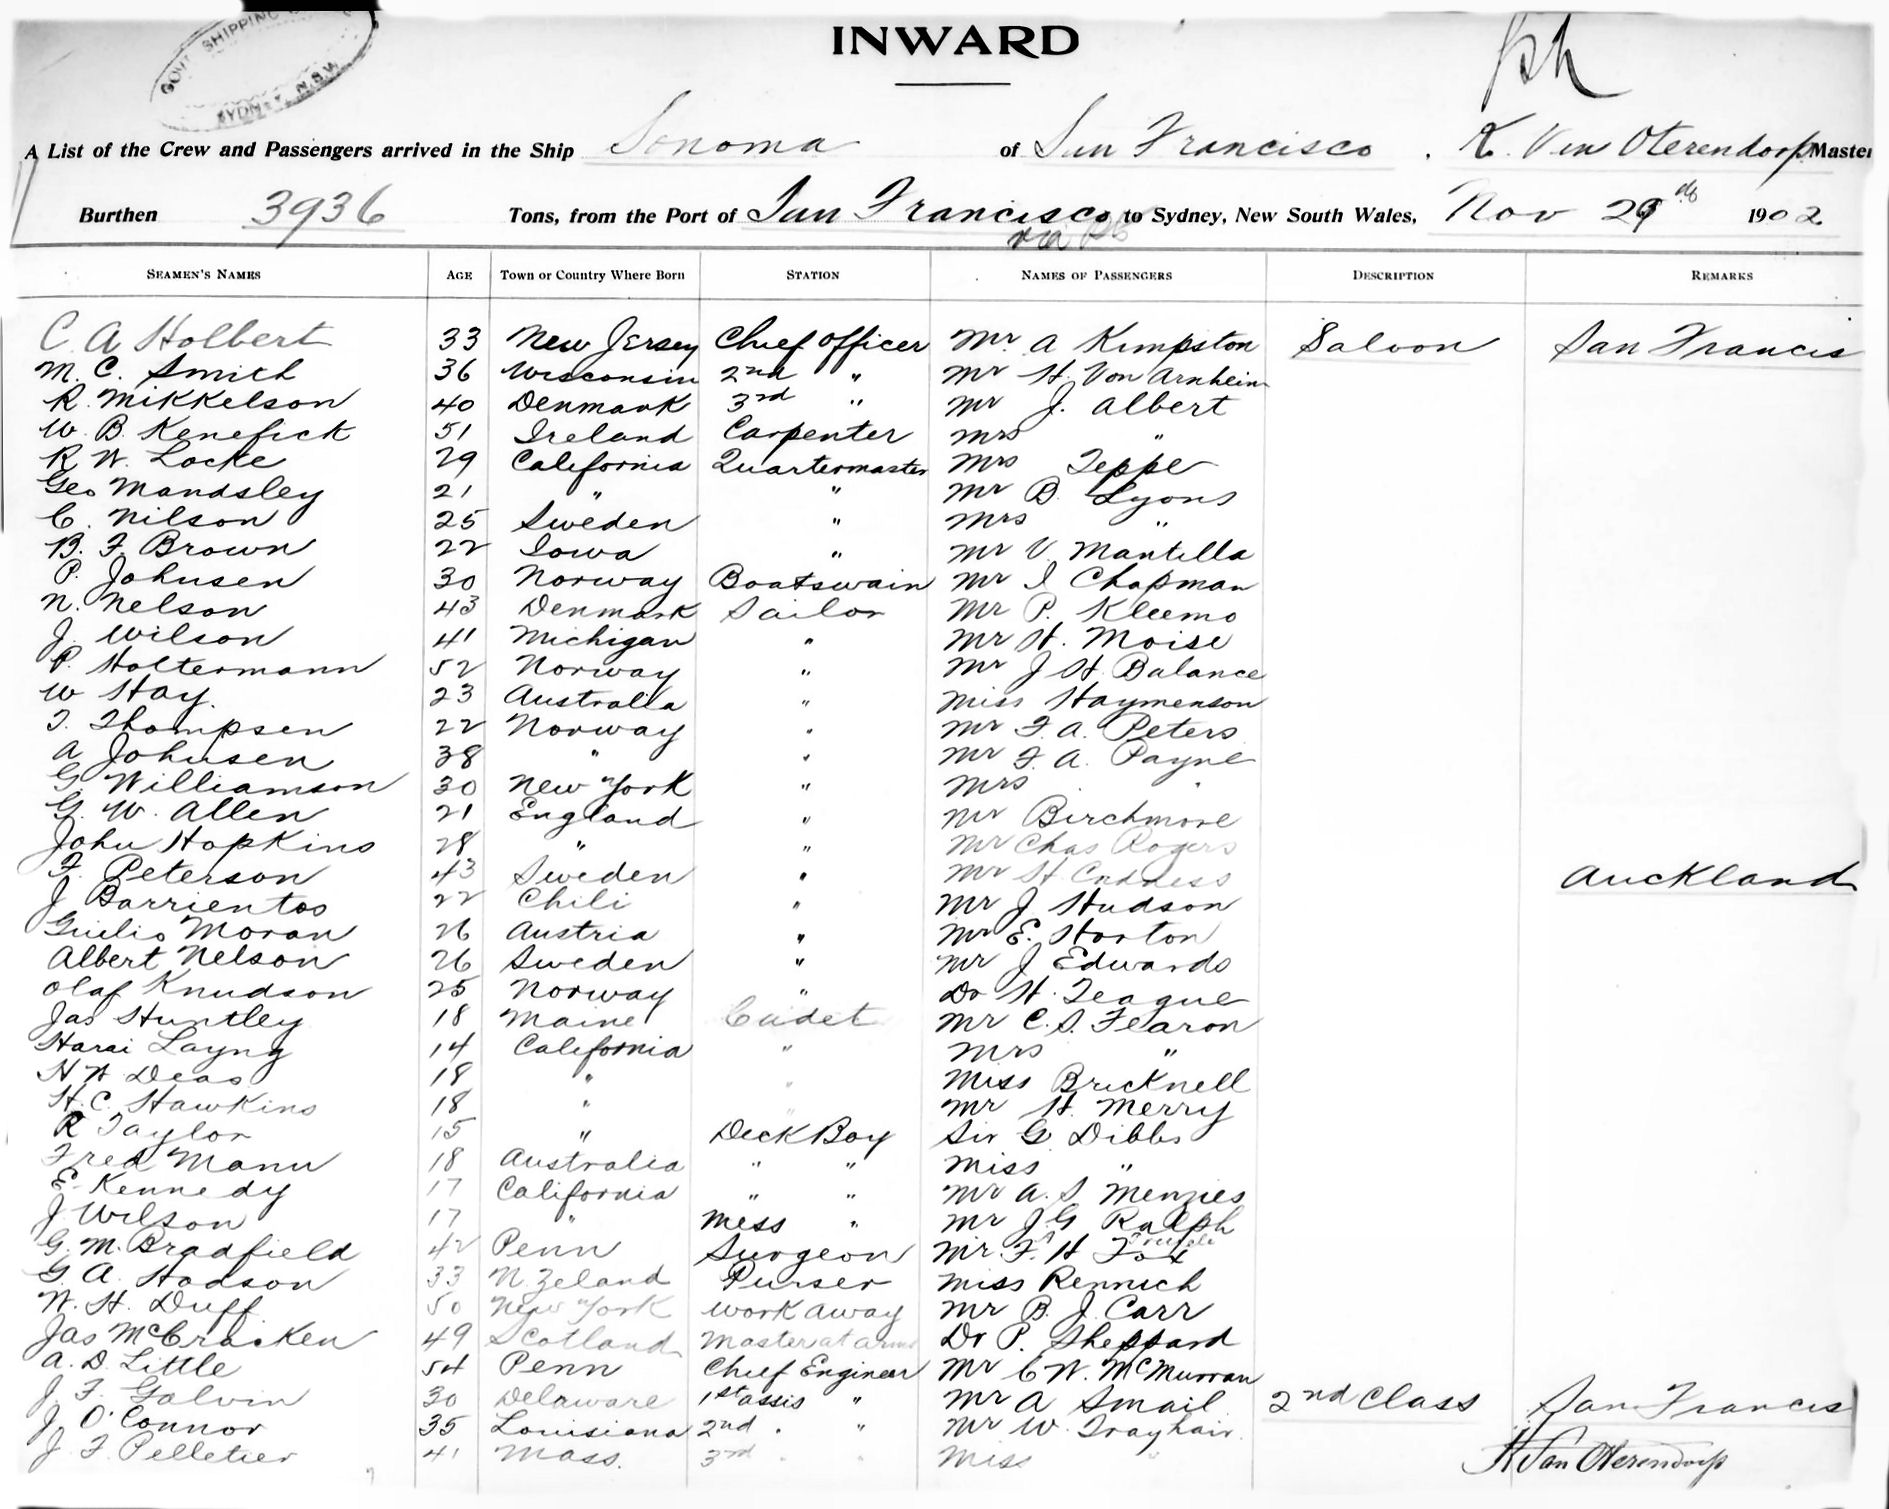 GOVT SHIPPING
SYDNEY N.S.W.
INWARD
A List of the Crew and Passengers arrived in the Ship Sonoma of San Francisco. K. Van Oterendorp Master
Burthen 3936 Tons, from the Port of San Francisco to Sydney, New South Wales, Nov 29th 1902
via
SEAMEN'S NAMES AGE Town or Country Where Born STATION NAMES OF PASSENGERS DESCRIPTION REMARKS
C. A Holbert 33 New Jersey Chief Officer Mr. A Kimpston Saloon San Francis
M. C. Smith 36 Wisconsin 2nd " Mr H. Von Arnheim
R. Mikkelson 40 Denmark 3rd " Mr J. Albert
W. B. Kenefick 51 Ireland Carpenter Mrs "
R W. Locke 29 California Quartermaster Mrs Teppe
Geo Mandsley 21 " " Mr B. Lyons
C. Nilson 25 Sweden " Mrs "
B. F. Brown 22 Iowa " Mr V. Mantilla
P. Johnsen 30 Norway Boatswain Mr I Chapman
N. Nelson 43 Denmark Sailor Mr P. Kleemo
J. Wilson 41 Michigan " Mr H. Moise
P. Holtermann 52 Norway " Mr J H. Balance
W Hay. 23 Australia " Miss Haymenson
T. Thompsen 22 Norway " Mr F. A. Peters
A Johnsen 38 " " Mr F. A. Payne
G. Williamson 30 New York " Mrs "
G. W. Allen 21 England " Mr Birchmore
John Hopkins 28 " " Mr Chas Rogers
F. Peterson 43 Sweden " Mr H Auckland
J Barrientos 22 Chili " Mr J Hudson
Giulio Moran 26 Austria " Mr E. Horton
Albert Nelson 26 Sweden " Mr J Edwards
Olaf Knudson 25 Norway " Dr H. Teague
Jas Huntley 18 Maine Cadet Mr C. S. Fearon
Harai Layng 14 California " Mrs "
H W Deas 18 " " Miss Bricknell
H. C. Hawkins 18 " Mr H. Merry
R Taylor 15 " Deck Boy Sir G Dibbs
Fred Mann 18 Australia " " Miss "
E. Kennedy 17 California " " Mr A. S. Menzies
J Wilson 17 " Mess " Mr J. G Ralph
G. M. Bradfield 42 Penn Surgeon Mr. F. H Fox
G. A. Hodson 33 N. Zeland Purser Miss Rennich
W. H. Duff 50 New York Work away Mr B. J. Carr
Jas McCracken 49 Scotland Master at arms Dr P. Sheppard
A. D. Little 54 Penn Chief Engineer Mr C W. McMurran
J. F. Galvin 30 Delaware 1st assis " Mr A Smail 2nd Class San Francis
J. O'Connor 35 Louisiana 2nd " " Mr W. Trayhair
J. F. Pelletier 41 Mass. 3rd " " Miss " K Van Oterendorp